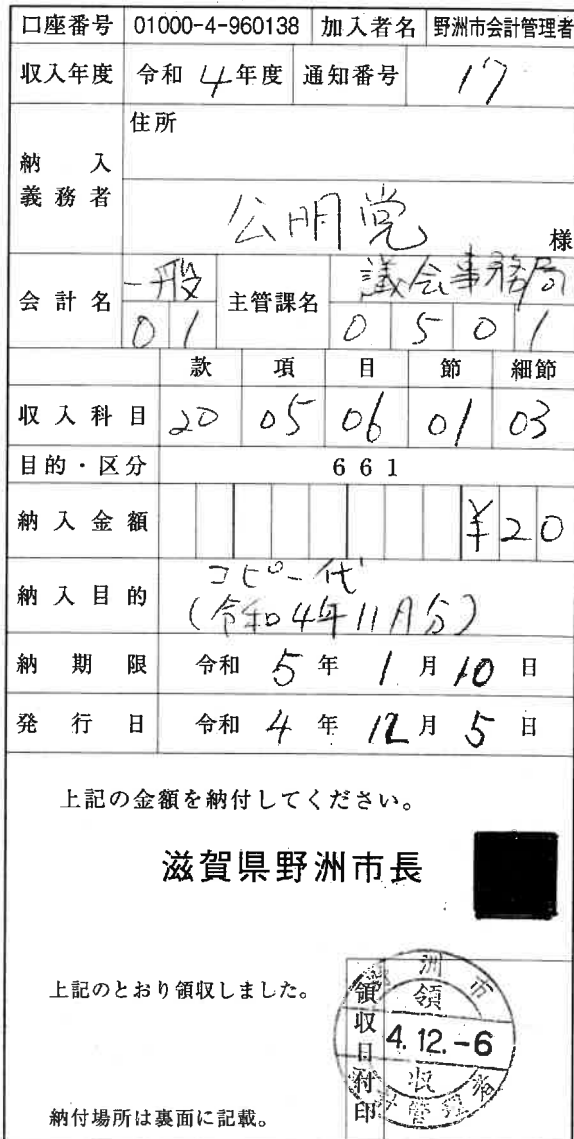 口座番号 01000-4-960138 加入者名 野洲市会計管理者
収入年度 令和 4年度 通知番号 17
住所
納入義務者
公明党 様
会計名 一般 主管課名 議会事務局
01 0501
款 項 目 節 細節
収入科目 20 05 06 01 03
目的・区分 661
納入金額 ¥20
納入目的 コピー代
(令和4年11月分)
納期限 令和 5年 1月10日
発行日 令和 4年 12月 5日
上記の金額を納付してください。
滋賀県野洲市長
上記のとおり領収しました。
領収日付印
野洲市
領
4.12.-6
収
会計管理者
納付場所は裏面に記載。